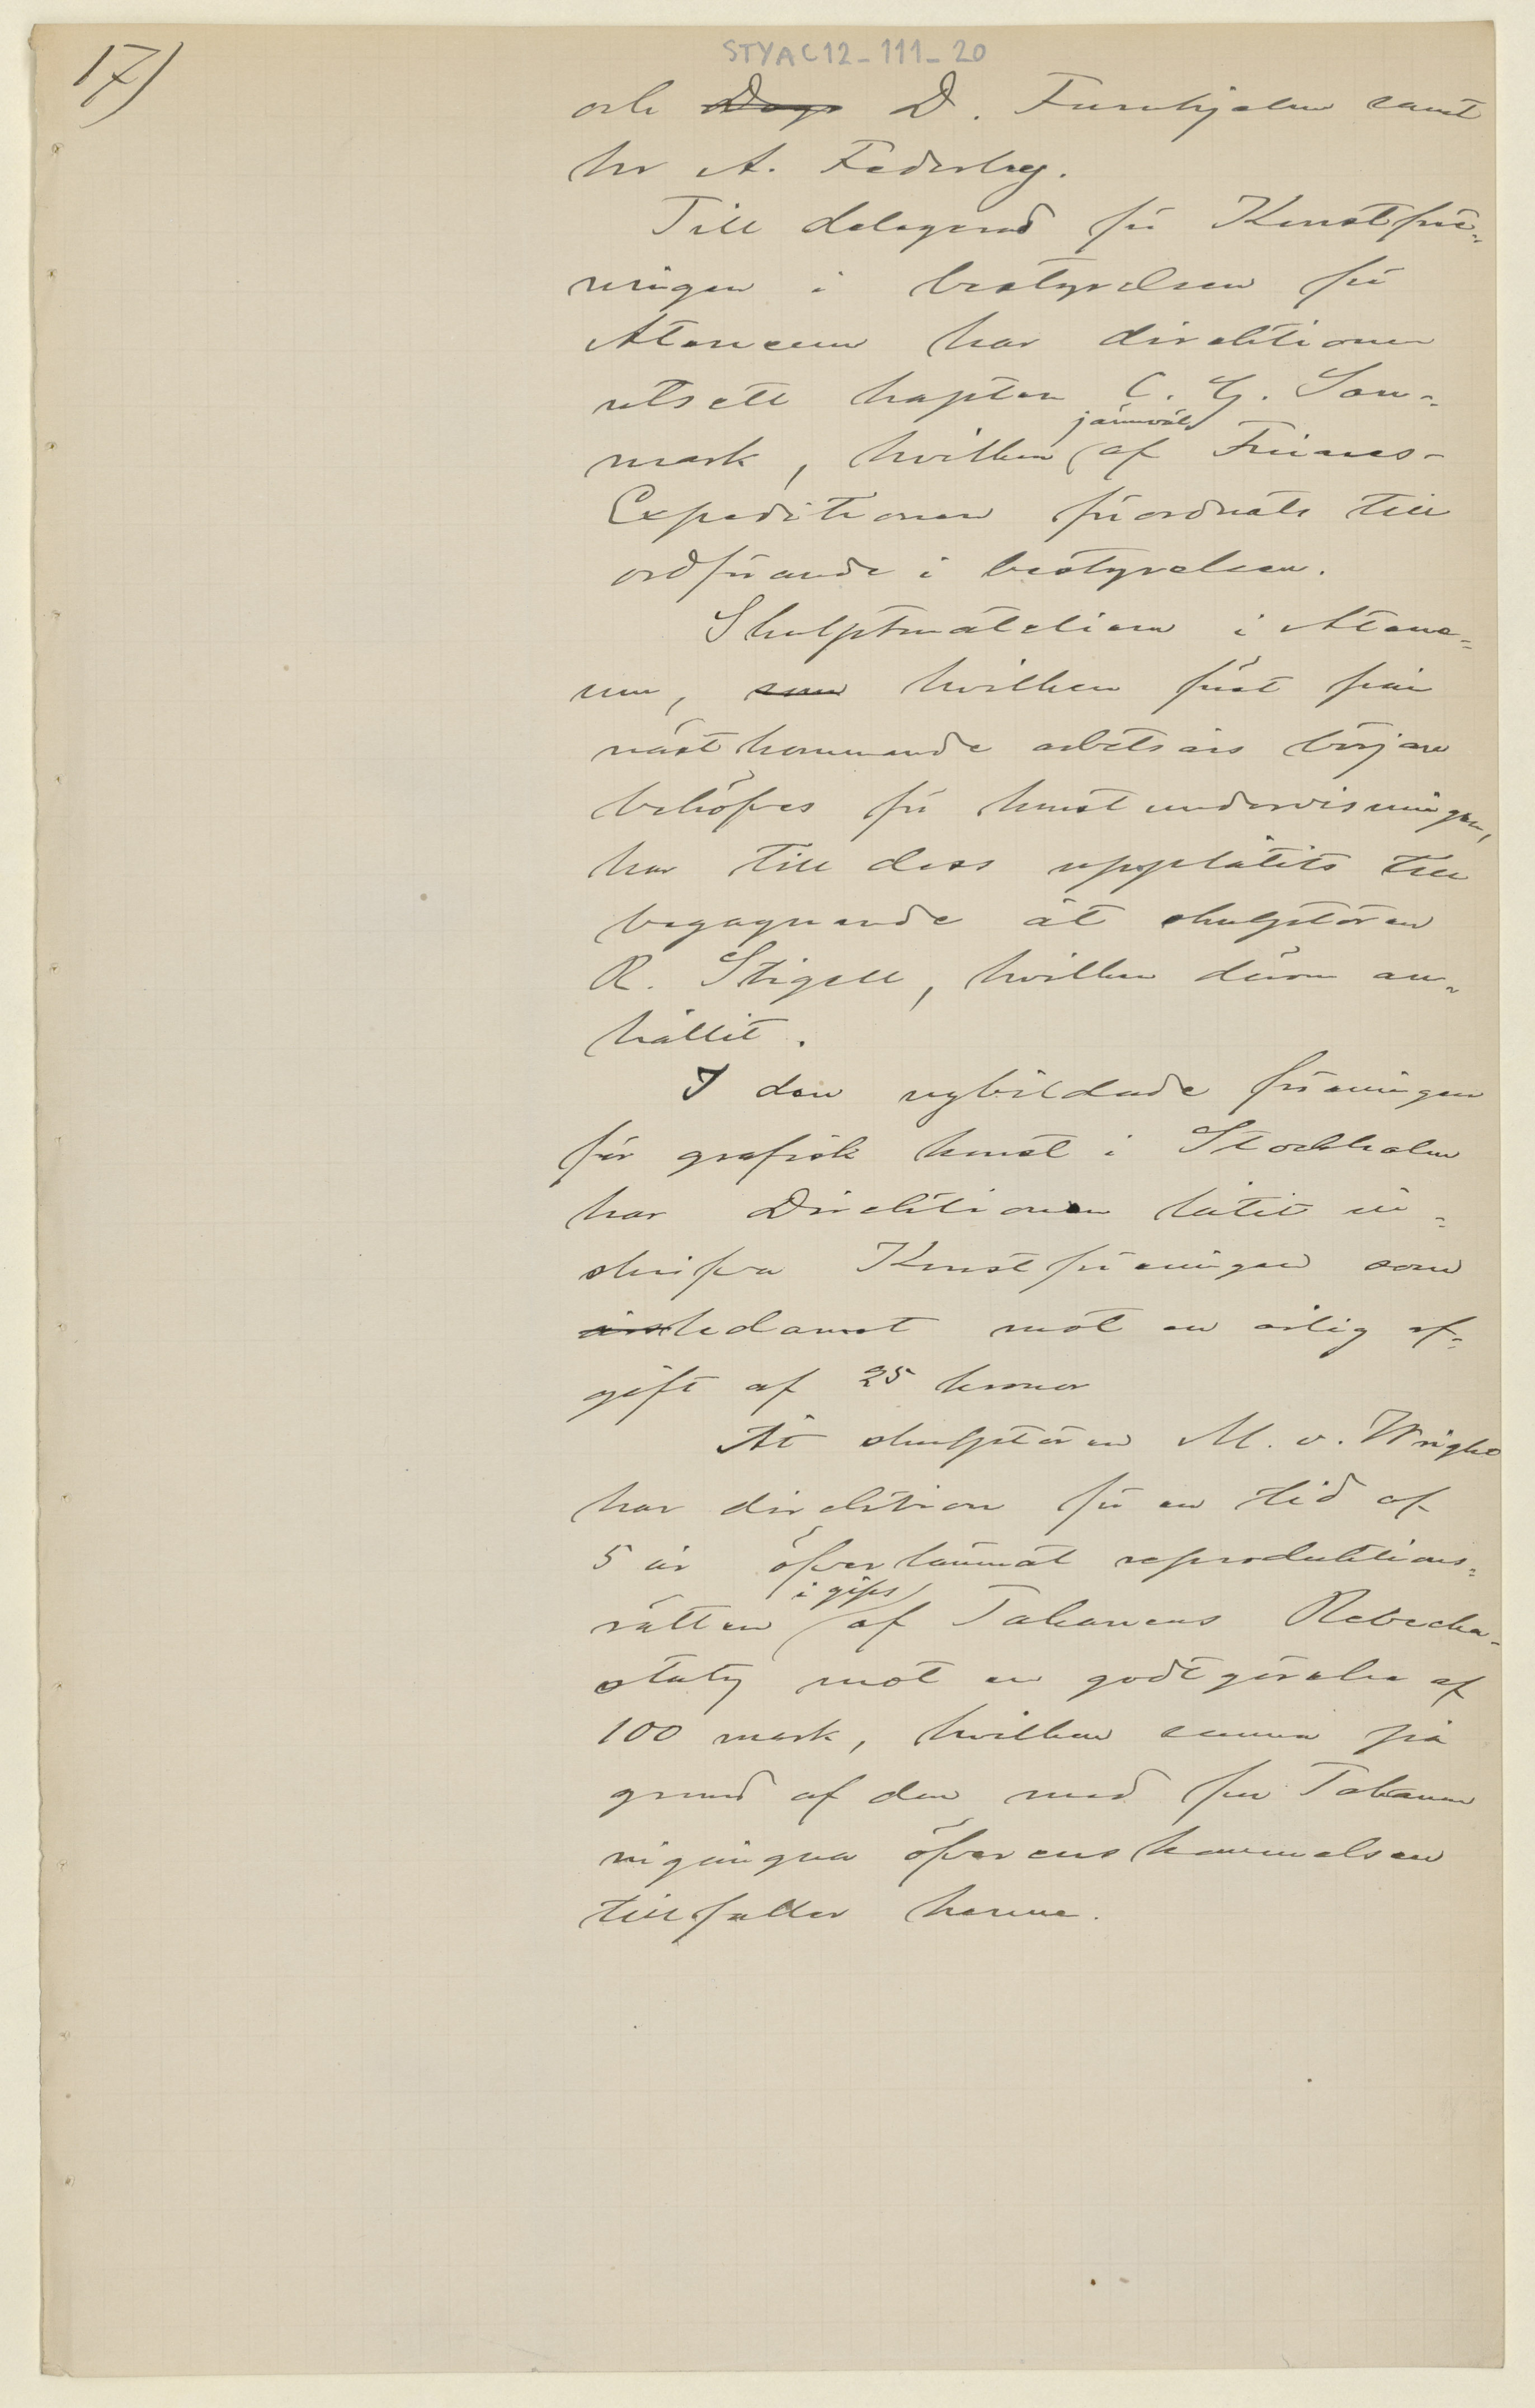 17)
STYAC12-111-20
och Dags D. Furuhjelm samt
hr A. Federley.
Till delegerad för Konstföre-
ningen i bestyrelsen för
Ateneum har direktionen
utsett kapten C. G. San-
mark, hvilken jämväl af Finans-
Expeditionen förordnats till
ordförande i bestyrelsen.
Skulpturateliern i Atene-
um, som hvilken först från
nästkommande arbetsårs början
behöfves för konstundervisningen,
har till dess upplåtits till
begagnande åt skulptören
R. Stigell, hvilken därom an-
hållit.
I den nybildade föreningen
för grafisk konst i Stockholm
har Direktionen låtit in-
skrifva Konstföreningen som
ledamot mot en årlig af-
gift af 25 kronor
Åt skulptören M. v. Wright
har direktion för en tid af
5 år öfverlämnat reproduktions-
rätten i gips af Takanens Rebecka-
staty mot en godtgörelse af
100 mark, hvilken summa på
grund af den med fru Takanen
ingångna öfverenskommelsen
tillfaller henne.